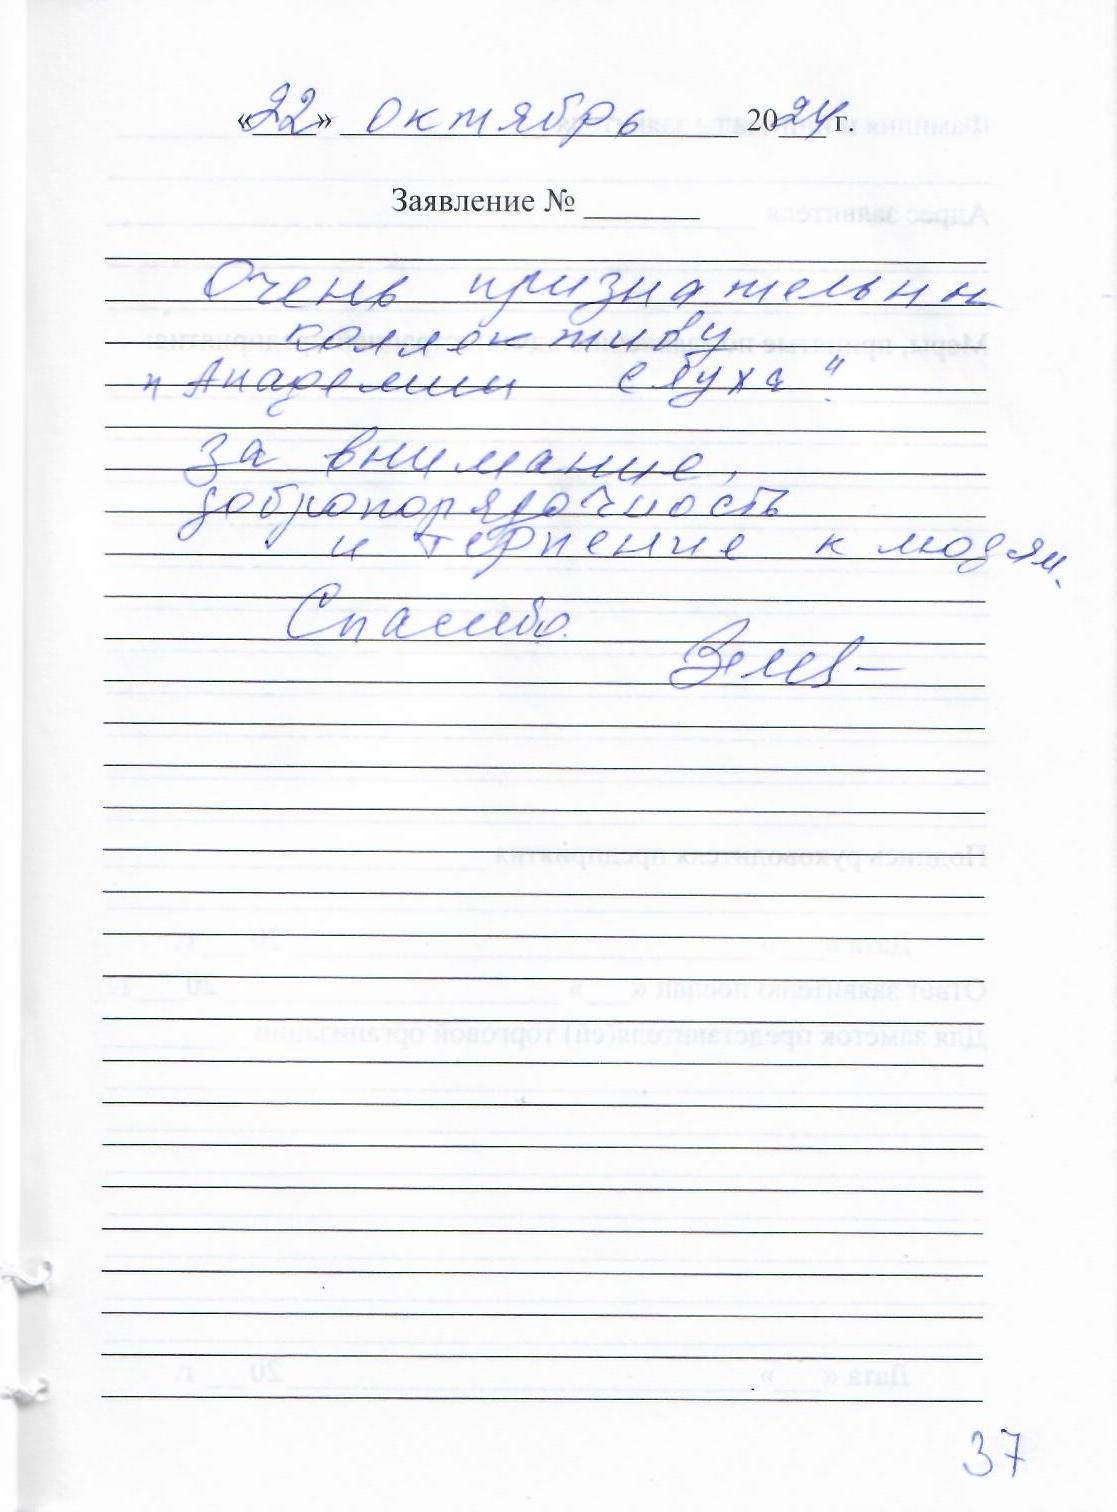 «22» октябрь 2024 г.
Заявление № ________
Очень признательны
коллективу
"Академии слуха"
за внимание,
добропорядочность
и терпение к людям.
Спасибо.
37